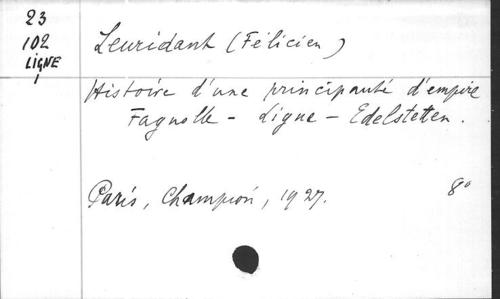 23
102
LIGNE
Leuridant (Félicien)
Histoire d'une principauté d'empire
Fagnolle - Ligne - Edelstetten.
Paris, Champion, 1927. 8°